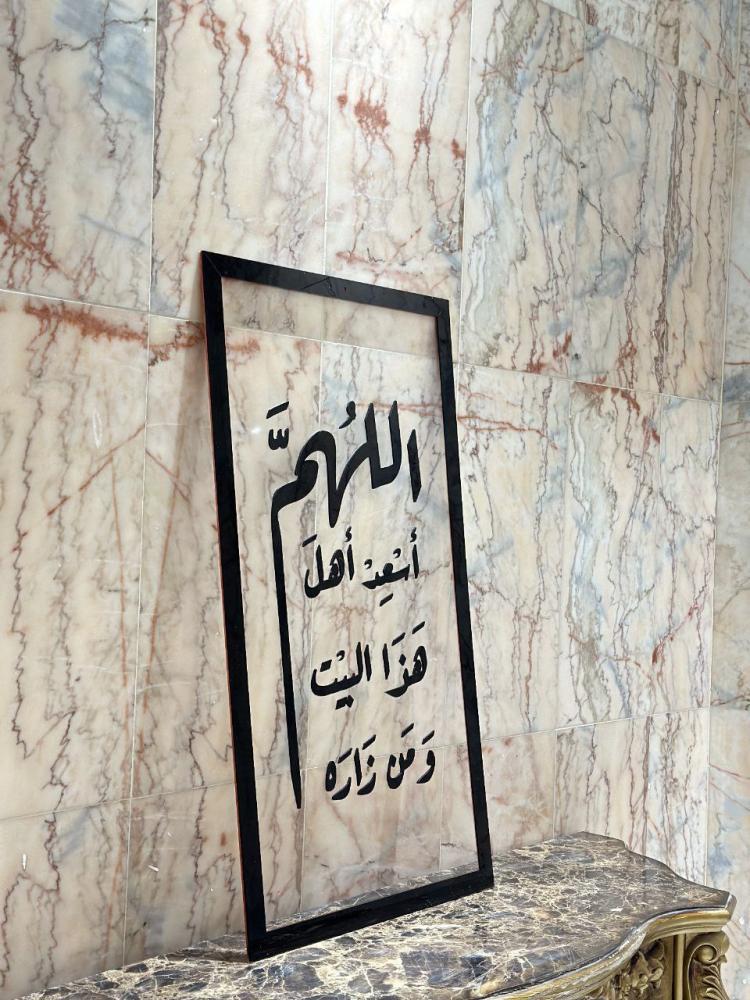 اللَّهُمَّ
أَسْعِدْ أهلَ
هَذَا البيْت
وَمَن زَارَه